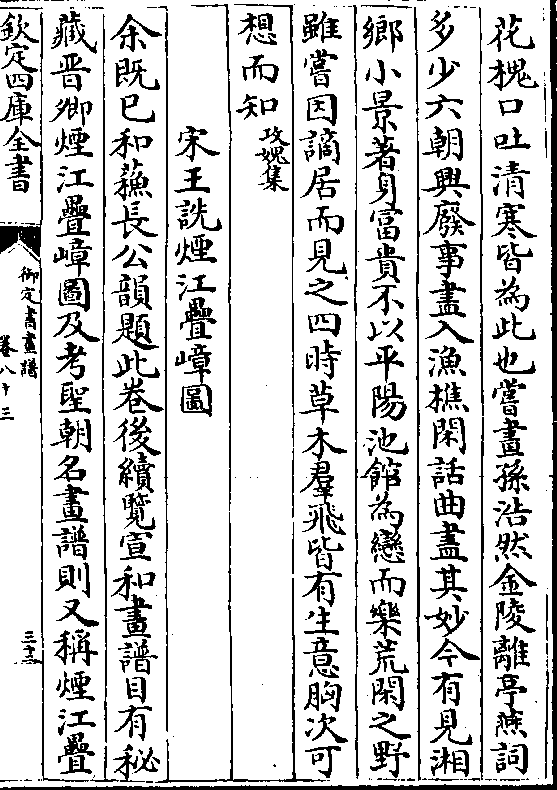 花槐口吐清寒皆為此也嘗畫孫浩然金陵離亭燕詞
多少六朝興廢事盡入漁樵閑話曲盡其妙今有見湘
鄉小景著身富貴不以平陽池館為戀而樂荒閑之野
雖嘗因謫居而見之四時草木羣飛皆有生意胸次可
想而知攻媿集
宋王詵煙江疊嶂圖
余既已和蘓長公韻題此卷後續覽宣和畫譜目有秘
藏晉卿煙江疊嶂圖及考聖朝名畫譜則又稱煙江疊
欽定四庫全書
御定書畫譜
卷八十三
三十三